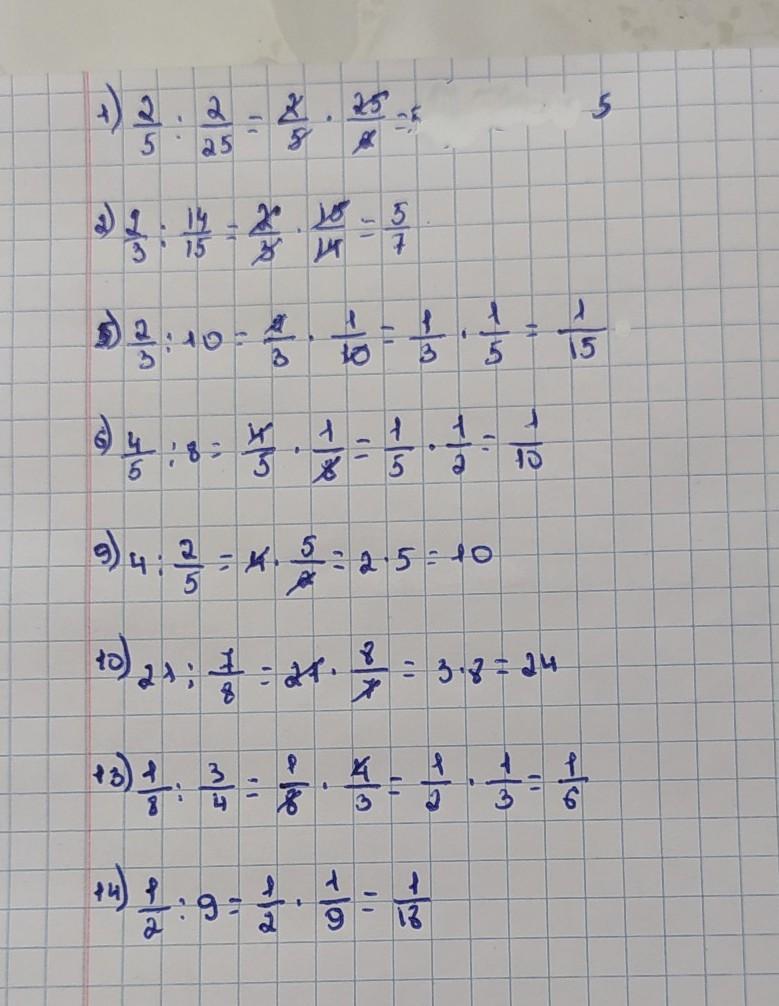 1) 2/5 : 2/25 = 2/5 · 25/2 = 5
2) 2/3 : 14/15 = 2/3 · 15/14 = 5/7
5) 2/3 : 10 = 2/3 · 1/10 = 1/3 · 1/5 = 1/15
6) 4/5 : 8 = 4/5 · 1/8 = 1/5 · 1/2 = 1/10
9) 4 : 2/5 = 4 · 5/2 = 2 · 5 = 10
10) 21 : 7/8 = 21 · 8/7 = 3 · 8 = 24
13) 1/8 : 3/4 = 1/8 · 4/3 = 1/2 · 1/3 = 1/6
14) 1/2 : 9 = 1/2 · 1/9 = 1/18